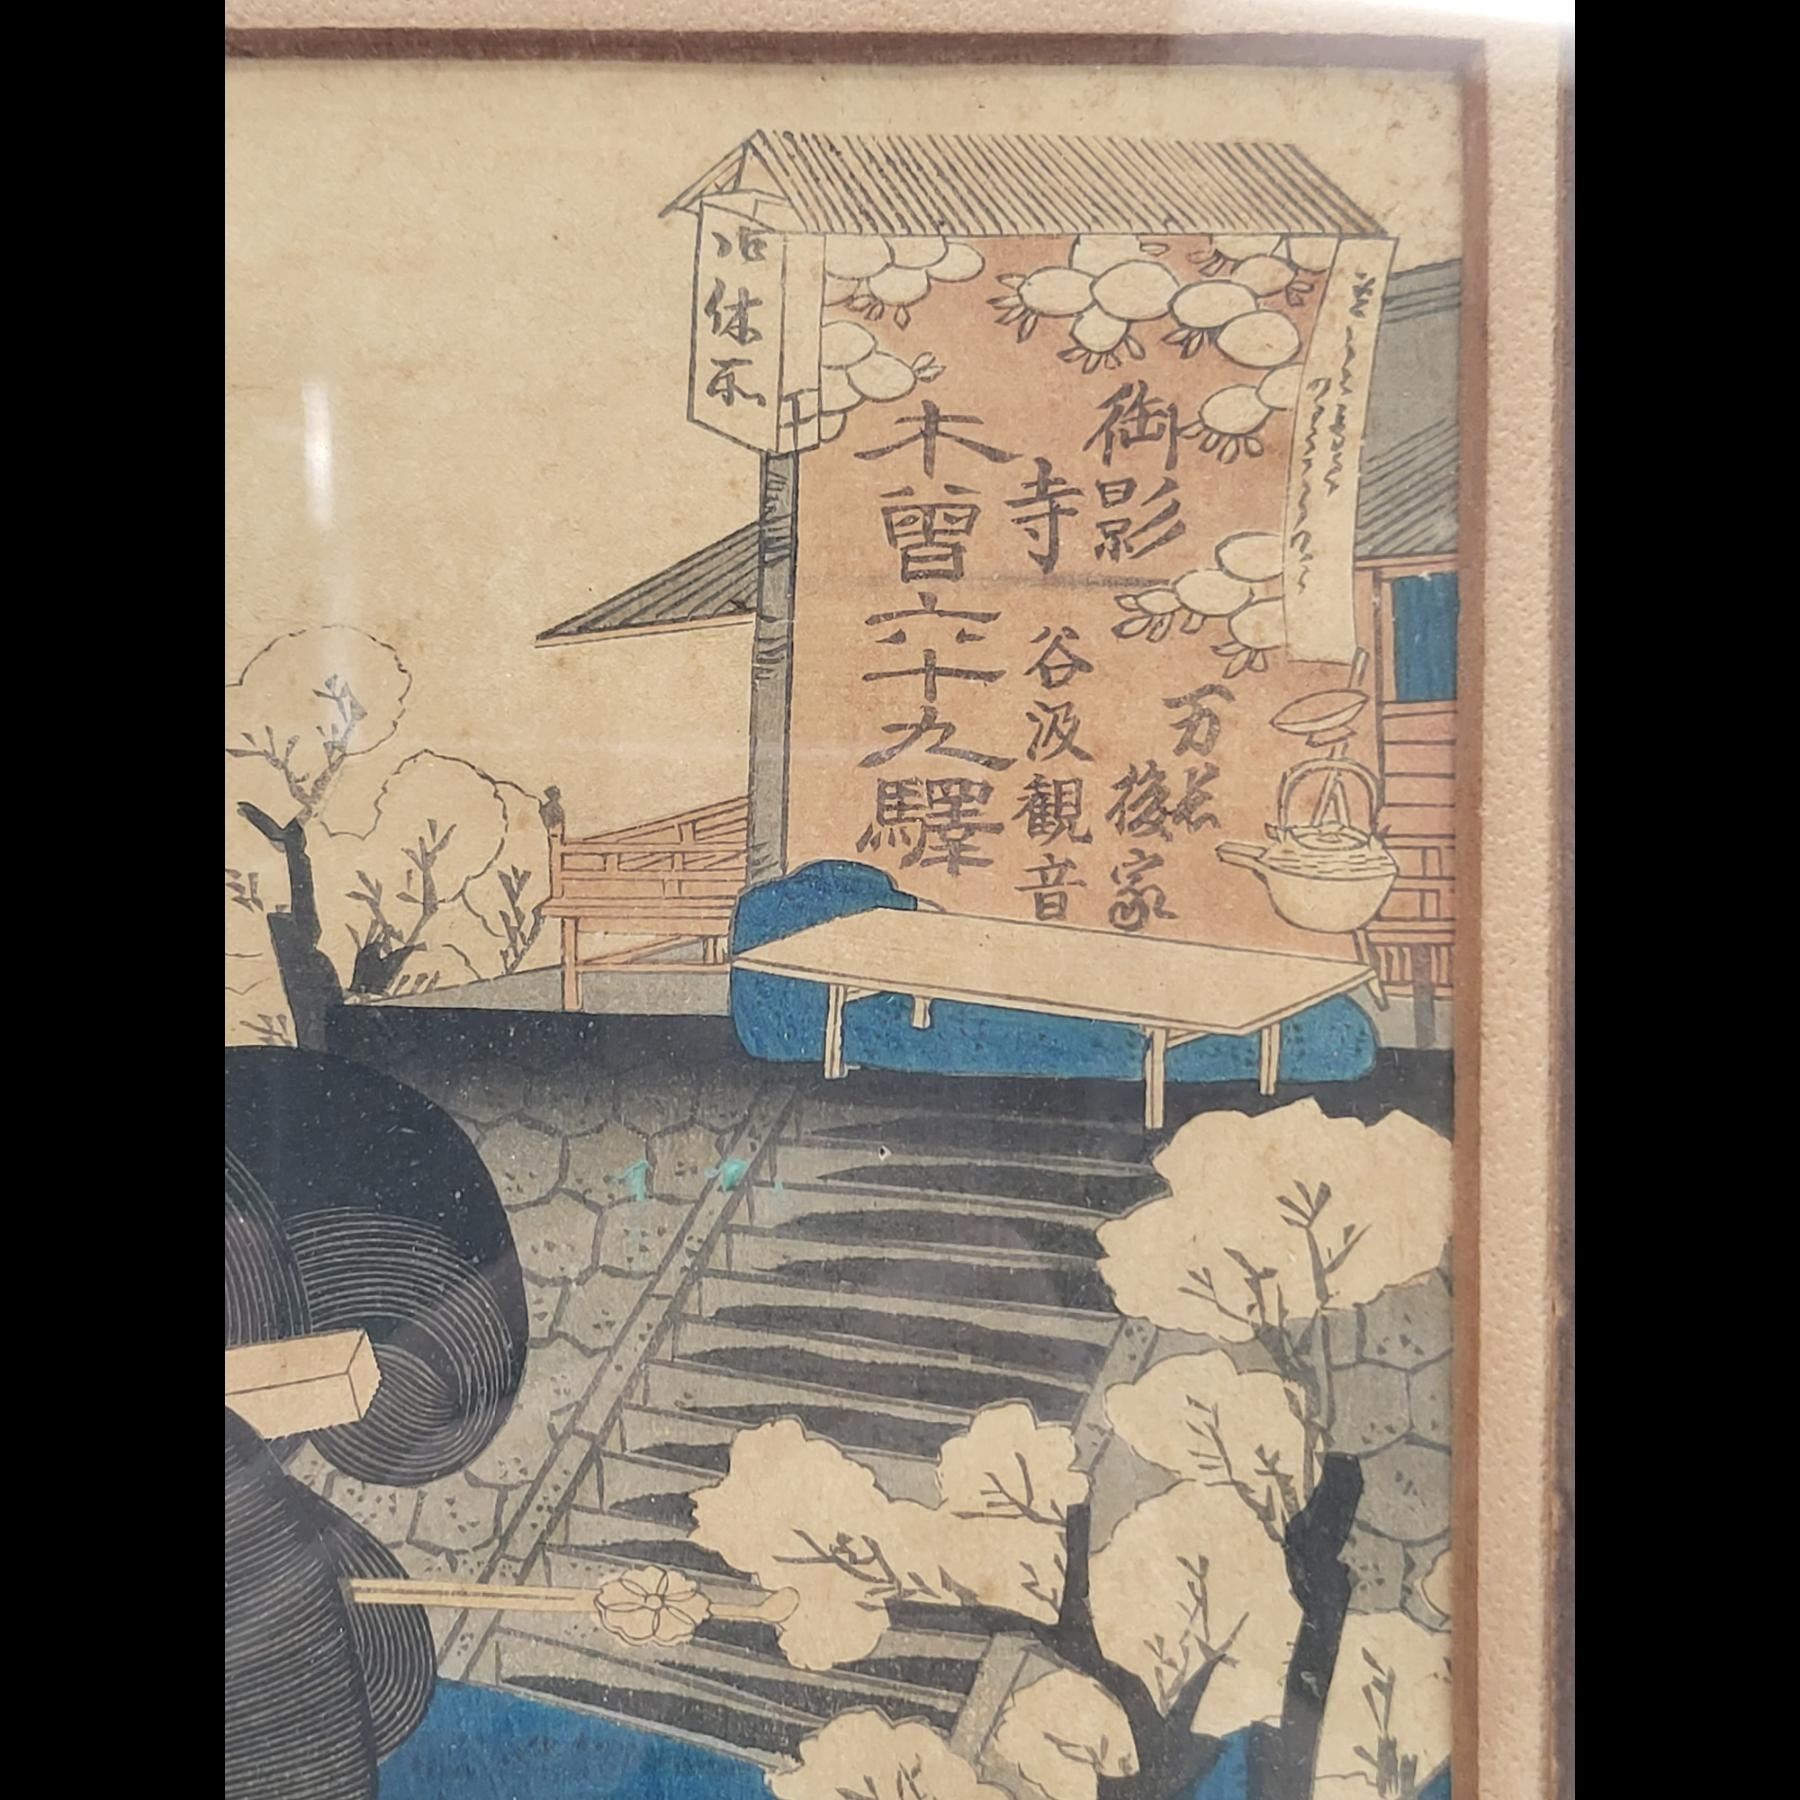 御影
寺
万長
後家
谷汲観音
木曽六十九驛
休所